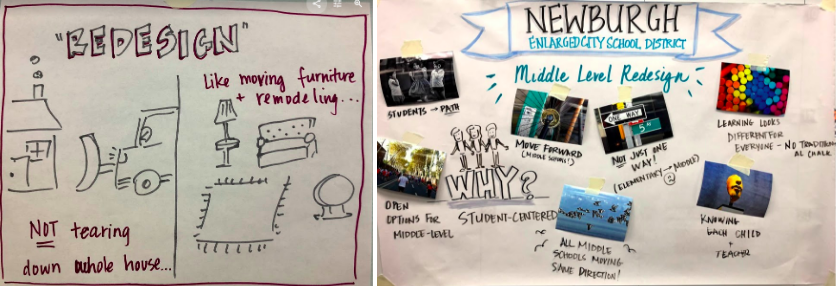 "REDESIGN"
Like moving furniture
+ remodeling...
NOT tearing
down whole house...
NEWBURGH
ENLARGED CITY SCHOOL DISTRICT
Middle Level Redesign
STUDENTS → PATH
MOVE FORWARD
(MIDDLE SCHOOLS!)
ONE WAY
5
NOT JUST ONE
WAY!
(ELEMENTARY → MIDDLE)
2
LEARNING LOOKS
DIFFERENT FOR
EVERYONE - NO TRADITION-
AL CHALK
OPEN
OPTIONS FOR
MIDDLE-LEVEL
WHY?
STUDENT-CENTERED
ALL MIDDLE
SCHOOLS MOVING
SAME DIRECTION!
KNOWING
EACH CHILD
+
TEACHER